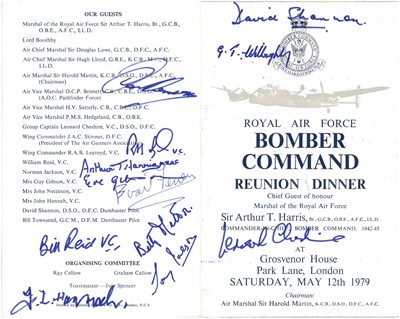 OUR GUESTS
Marshal of the Royal Air Force Sir Arthur T. Harris, Bt., G.C.B., O.B.E., A.F.C., LL.D.
Lord Boothby
Air Chief Marshal Sir Douglas Lowe, G.C.B., D.F.C., A.F.C.
Air Chief Marshal Sir Hugh
Air Marshal Sir Harold Martin, K.C.B., D.S.O., D.F.C., A.F.C.
(Chairman)
Air Vice Marshal D.C.P. Bennett, C.B., C.B.E., D.S.O.
(A.O.C. Pathfinder Force)
Air Vice Marshal H.V. Satterly, C.B., C.B.E., D.F.C.
Air Vice Marshal P.M.S. Hedgeland, C.B.
Group Captain Leonard Cheshire, V.C., D.S.O., D.F.C.
Wing Commander J.A.C.
(President of The Air Gunners Association)
Wing Commander R.A.B. Learoyd, V.C.
William Reid, V.C.
Norman Jackson, V.C.
Mrs Guy Gibson, V.C.
Mrs John Nettleton, V.C.
Mrs John Hannah, V.C.
David Shannon, D.S.O., D.F.C. Dambuster Pilot
Bill Townsend, C.G.M. Dambuster Pilot
Bill Reid VC.
ORGANISING COMMITTEE
Ray Callow Graham Callow
Toastmaster Ivor Spencer
David Shannon.
ROYAL AIR FORCE
BOMBER
COMMAND
REUNION DINNER
Chief Guest of honour
Marshal of the Royal Air Force
Sir Arthur T. Harris, Bt., G.C.B., O.B.E., A.F.C., LL.D.
COMMANDER-IN-CHIEF BOMBER COMMAND. 1942-45
AT
Grosvenor House
Park Lane, London
SATURDAY, MAY 12th 1979
Chairman:
Air Marshal Sir Harold Martin, K.C.B., D.S.O., D.F.C., A.F.C.